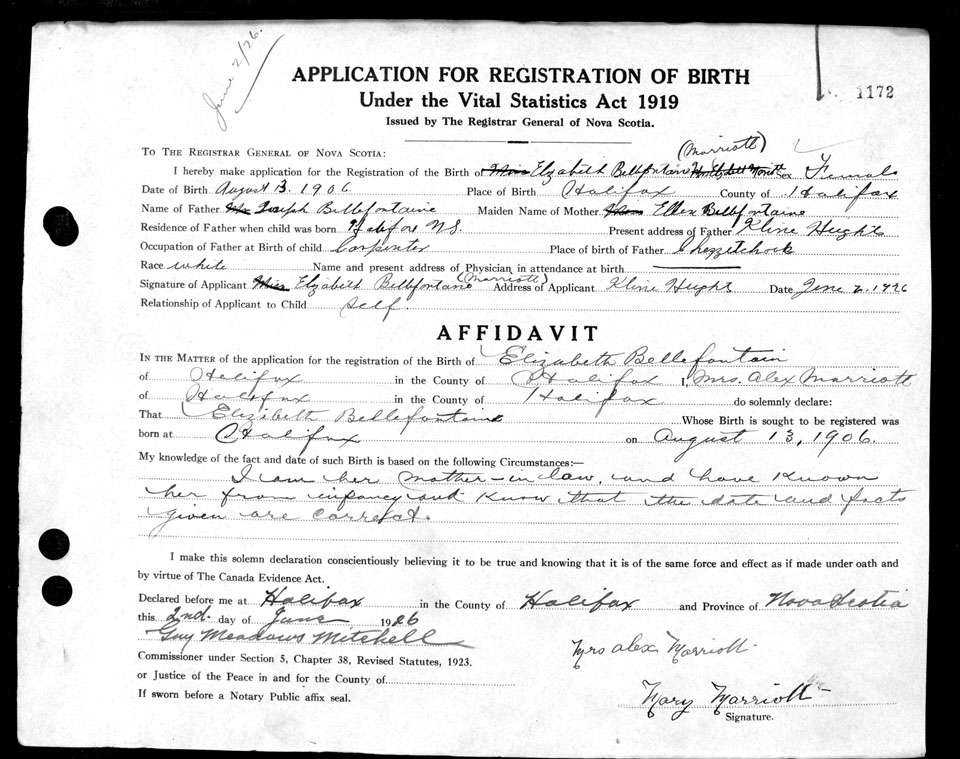 June 2/26.
APPLICATION FOR REGISTRATION OF BIRTH
1172
Under the Vital Statistics Act 1919
Issued by The Registrar General of Nova Scotia.
(Marriott)
TO THE REGISTRAR GENERAL OF NOVA SCOTIA:
I hereby make application for the Registration of the Birth of Miss Elizabeth Bellfontaine Sex Female
Date of Birth August 13, 1906 Place of Birth Halifax County of Halifax
Name of Father Joseph Bellefontaine Maiden Name of Mother Ellen Bellfontaine
Residence of Father when child was born Halifax N.S. Present address of Father Kline Hights
Occupation of Father at Birth of child Carpenter Place of birth of Father Chezzetchook
Race white Name and present address of Physician in attendance at birth
Signature of Applicant Miss Elizabeth Bellefontaine (Marriott) Address of Applicant Kline Hights Date June 2, 1926
Relationship of Applicant to Child self.
AFFIDAVIT
IN THE MATTER of the application for the registration of the Birth of Elizabeth Bellefontain
of Halifax in the County of Halifax I, Mrs. Alex Marriott
of Halifax in the County of Halifax do solemnly declare:
That Elizabeth Bellefontaine Whose Birth is sought to be registered was
born at Halifax on August 13, 1906.
My knowledge of the fact and date of such Birth is based on the following Circumstances:—
I am her mother-in law, and have known
her from infancy and know that the date and facts
given are correct.
I make this solemn declaration conscientiously believing it to be true and knowing that it is of the same force and effect as if made under oath and
by virtue of The Canada Evidence Act.
Declared before me at Halifax in the County of Halifax and Province of Nova Scotia
this 2nd. day of June 1926
Guy Meadows Mitchell
Mrs Alex Marriott
Commissioner under Section 5, Chapter 38, Revised Statutes, 1923.
or Justice of the Peace in and for the County of
Mary Marriott
If sworn before a Notary Public affix seal.
Signature.